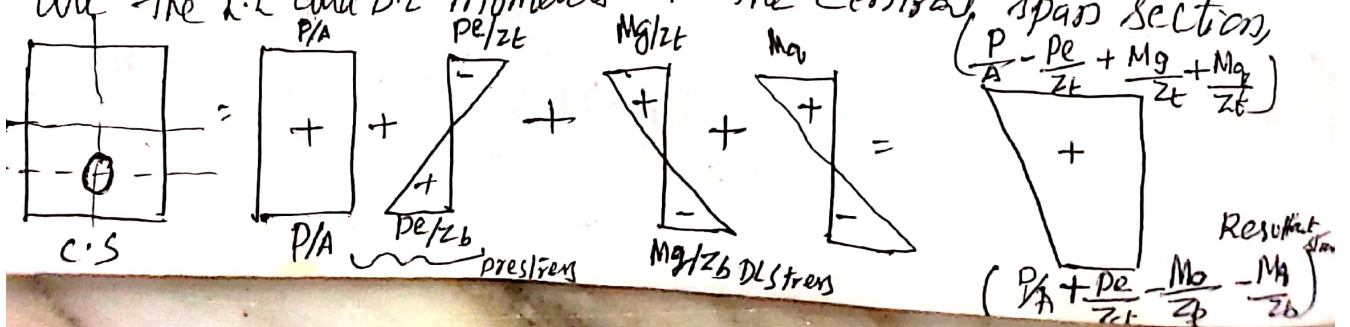 the L.L and D.L moments the central span section,
P/A Pe/Zt Mg/Zt Mq (P/A - Pe/Zt + Mg/Zt + Mq/Zt)
= + + - + + + + + = +
+ - -
C.S P/A Pe/Zb prestress Mg/Zb DL stress Resultant
(P/A + Pe/Zb - Mg/Zb - Mq/Zb)